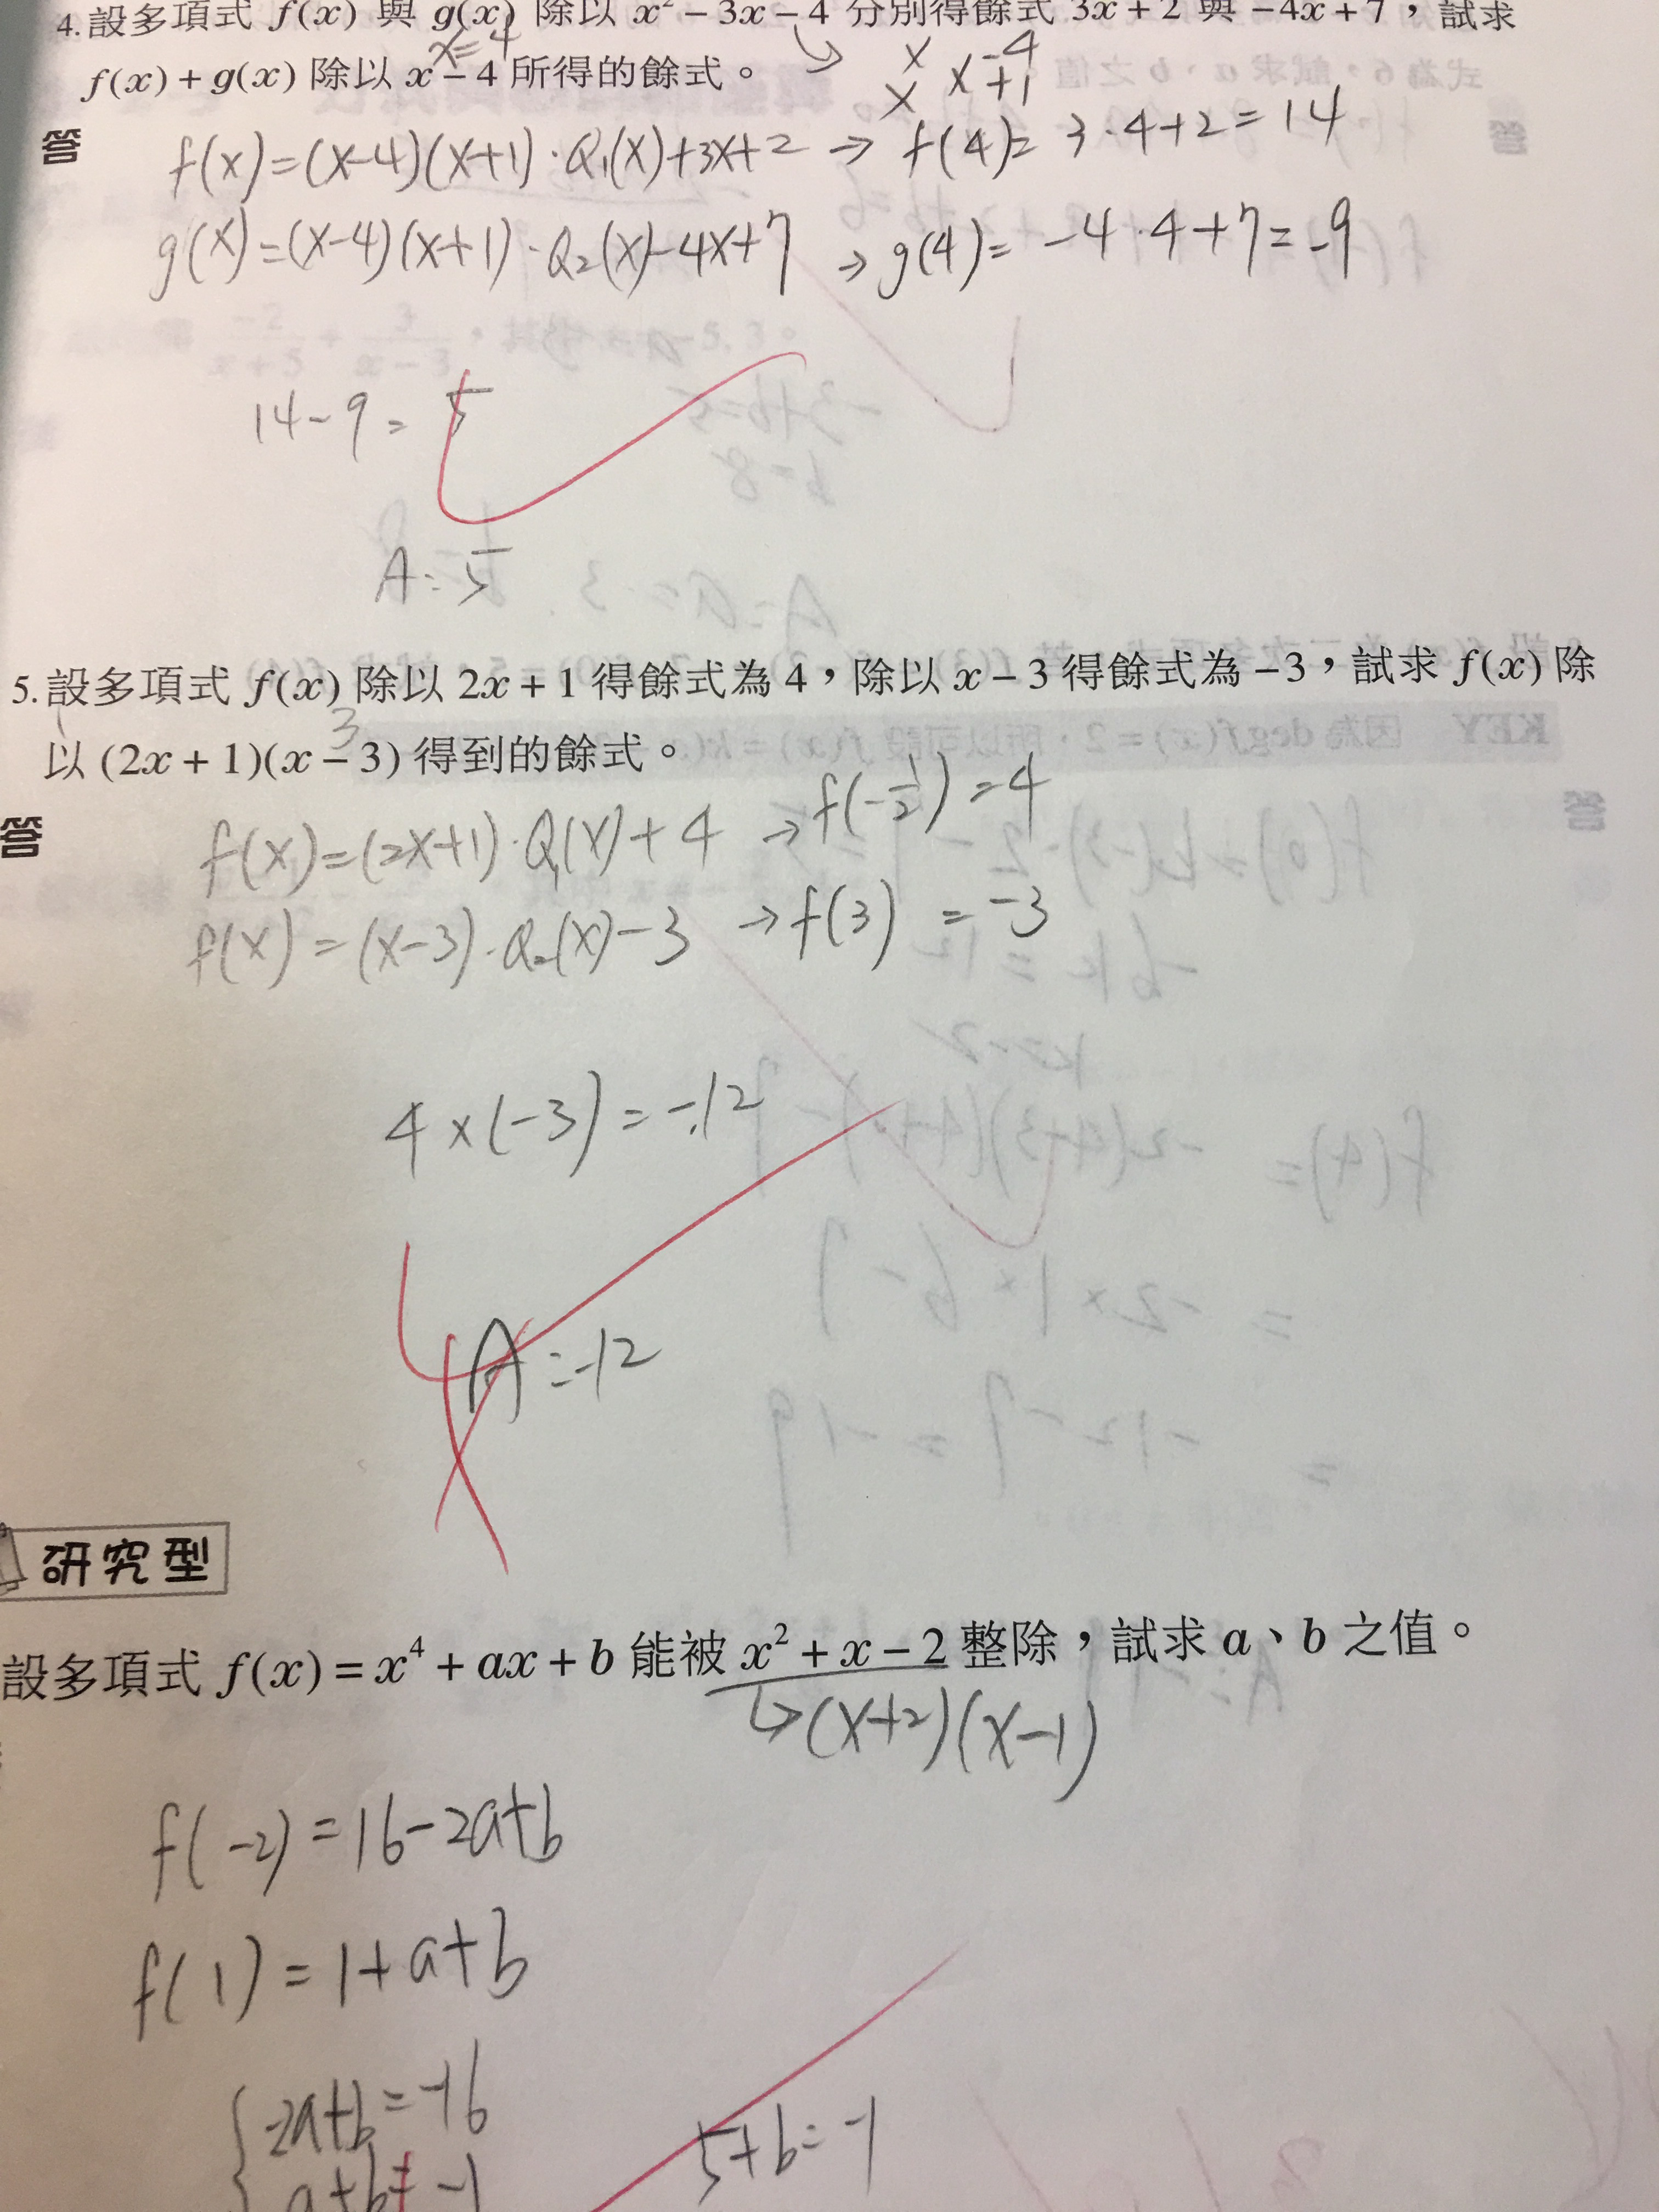 4.設多項式 f(x) 與 g(x) 除以 x² − 3x − 4 分別得餘式 3x + 2 與 −4x + 7，試求
x=4
f(x) + g(x) 除以 x − 4 所得的餘式。
x −4
x x +1
答
f(x)=(x-4)(x+1)·Q₁(x)+3x+2 → f(4)= 3·4+2=14
g(x)=(x-4)(x+1)·Q₂(x)-4x+7 → g(4)= -4·4+7=-9
14-9=5
A=5
5.設多項式 f(x) 除以 2x + 1 得餘式為 4，除以 x − 3 得餘式為 −3，試求 f(x) 除
3
以 (2x + 1)(x − 3) 得到的餘式。
答
f(x)=(2x+1)·Q₁(x)+4 → f(-1/2)=4
f(x)=(x-3)·Q₂(x)-3 → f(3) = -3
4×(-3)=-12
A=-12
研究型
設多項式 f(x) = x⁴ + ax + b 能被 x² + x − 2 整除，試求 a、b 之值。
↳(x+2)(x-1)
f(-2)=16-2a+b
f(1)=1+a+b
-2a+b=-16
a+b=-1
5+b=-1